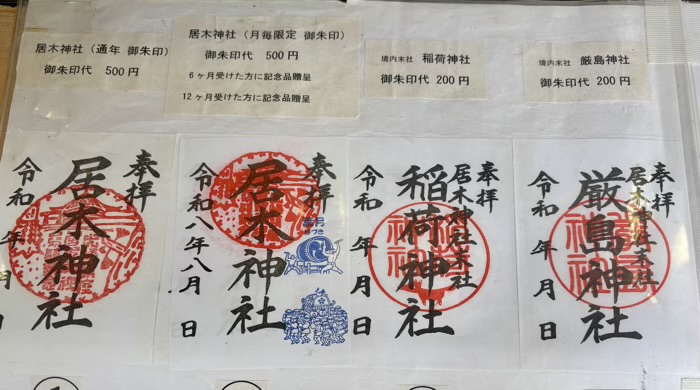 居木神社（通年 御朱印）
御朱印代 500円
居木神社（月毎限定 御朱印）
御朱印代 500円
6ヶ月受けた方に記念品贈呈
12ヶ月受けた方に記念品贈呈
境内末社 稲荷神社
御朱印代 200円
境内末社 厳島神社
御朱印代 200円
奉拝
居木神社
令和 年 月
奉拝
居木神社
令和八年八月 日
奉拝
居木神社末社
稲荷神社
令和 年 月 日
奉拝
居木神社末社
厳島神社
令和 年 月 日